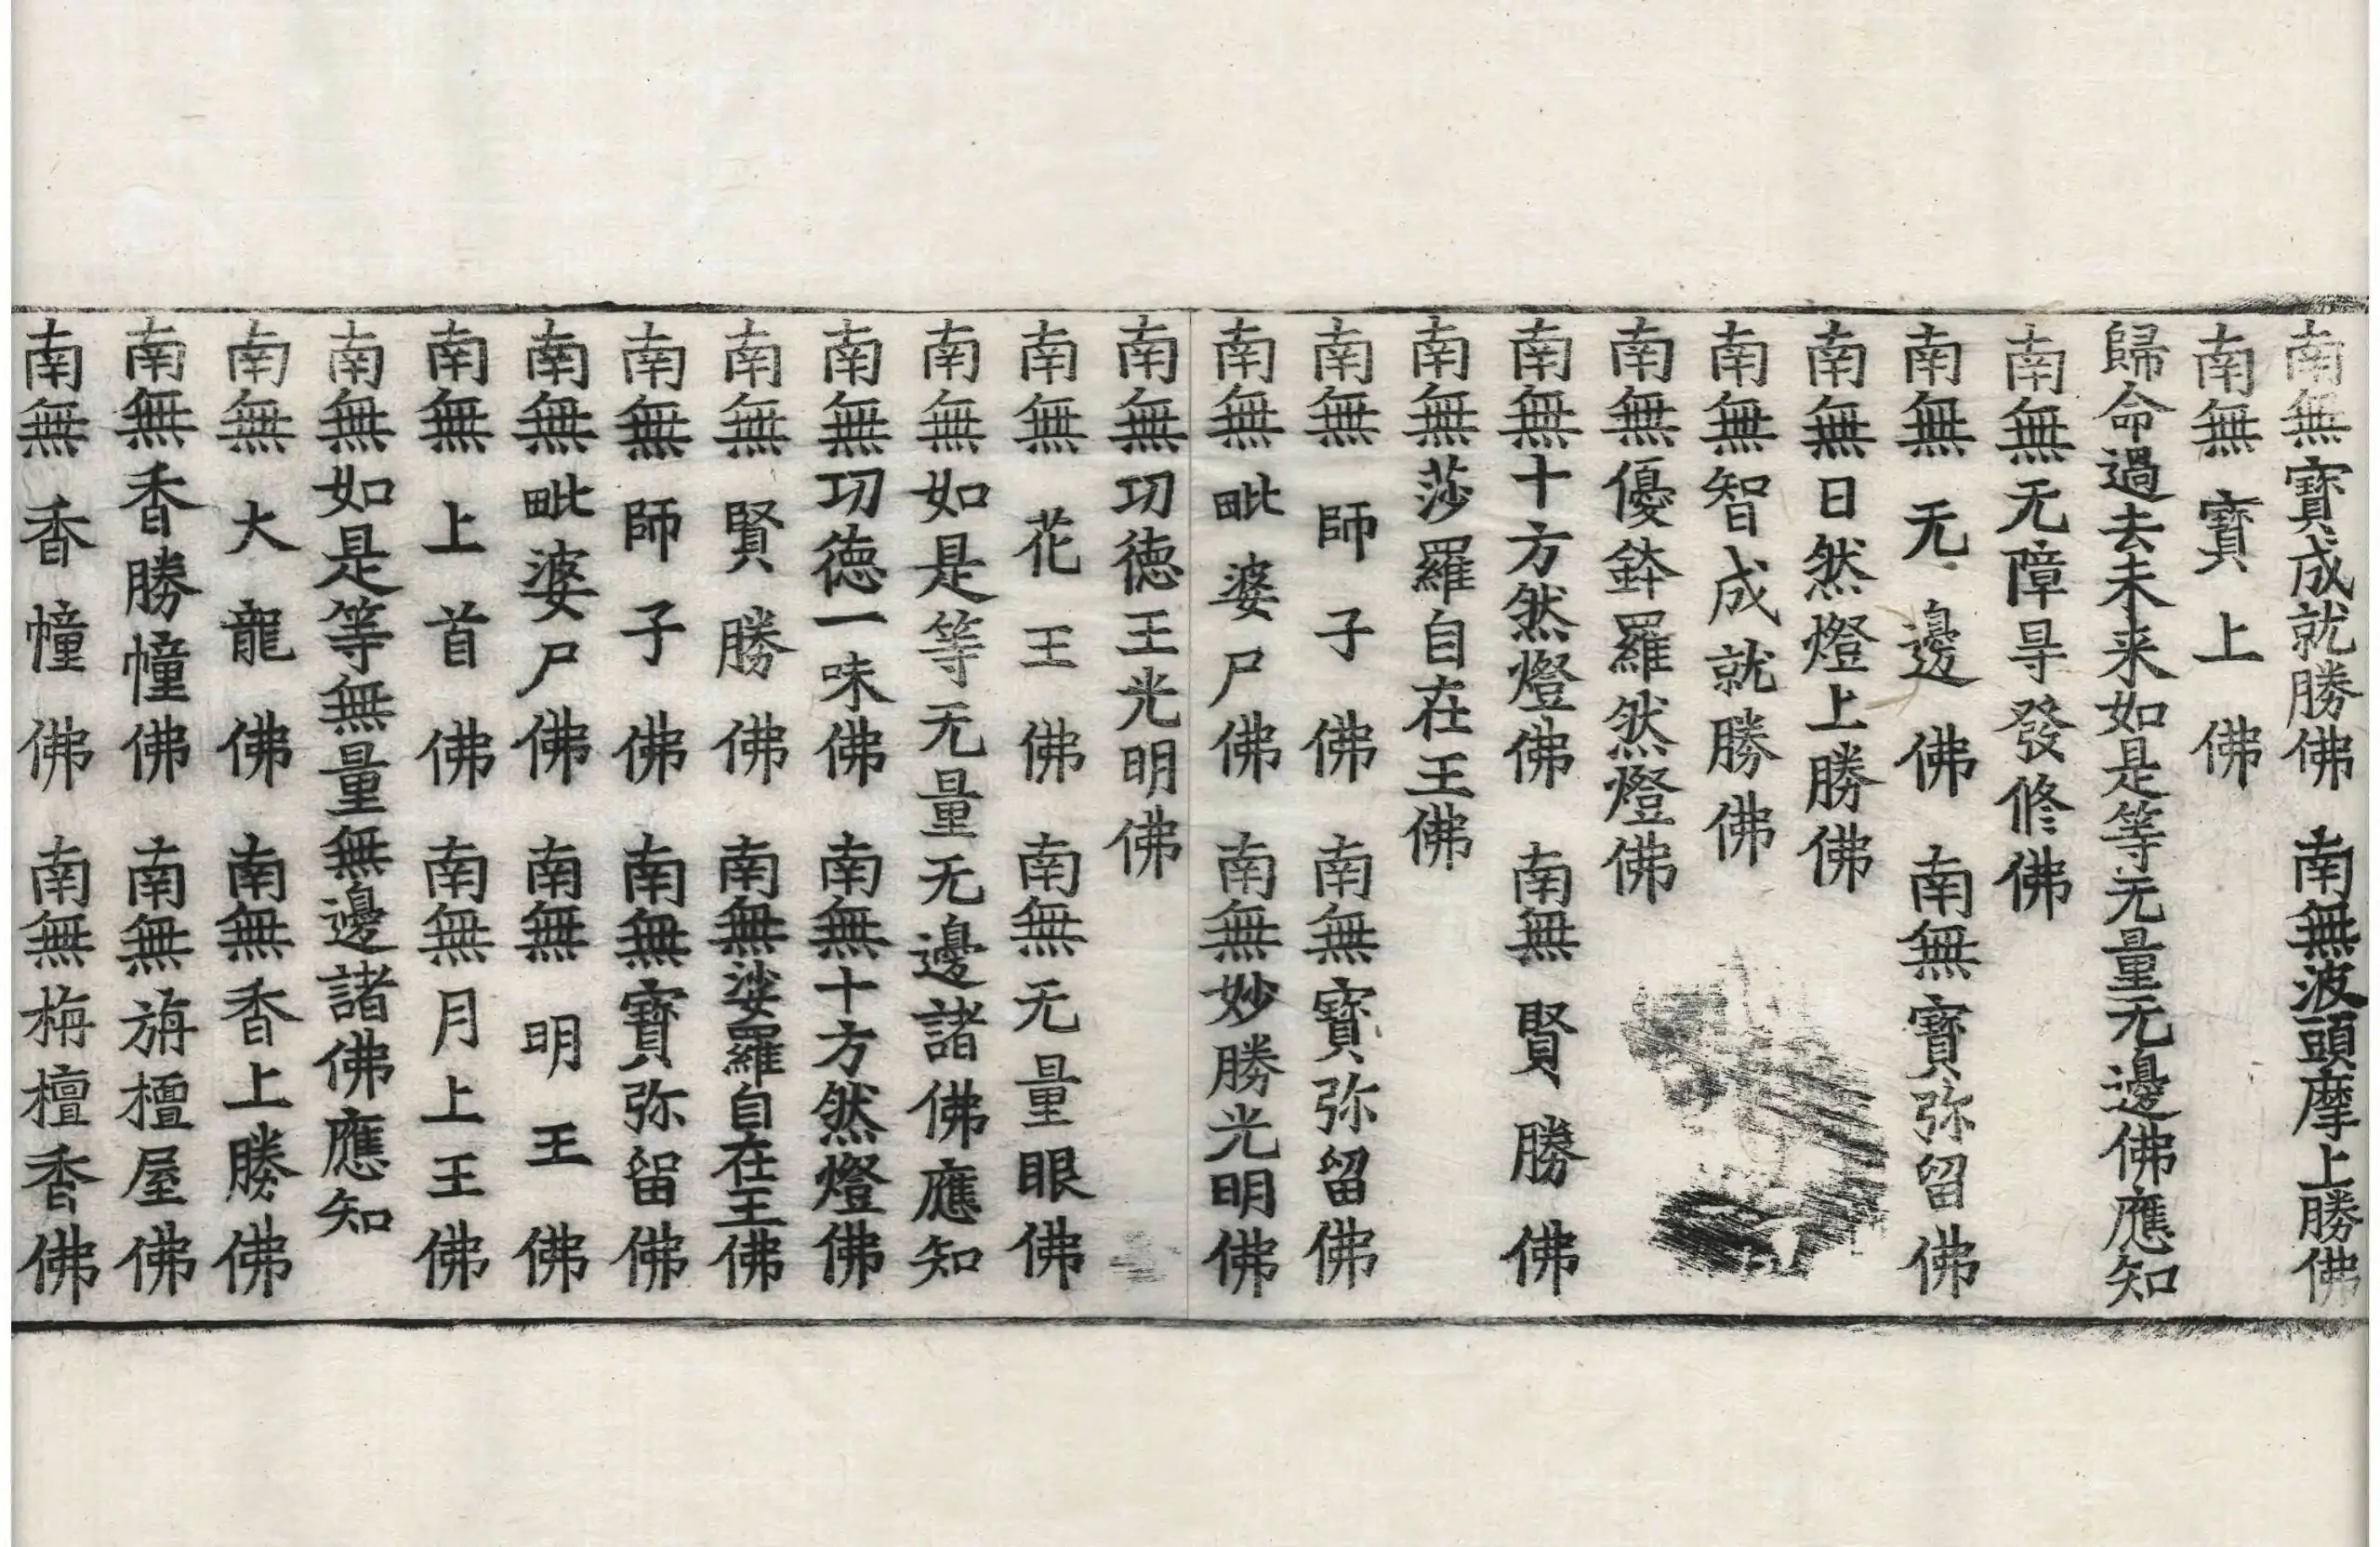 南無寶成就勝佛　南無波頭摩上勝佛
南無寶上佛
歸命過去未来如是等无量无邊佛應知
南無无障㝵發修佛
南無无邊佛　南無寶弥留佛
南無日然燈上勝佛
南無智成就勝佛
南無優鉢羅然燈佛
南無十方然燈佛　南無賢勝佛
南無莎羅自在王佛
南無師子佛　南無寶弥留佛
南無毗婆尸佛　南無妙勝光明佛
南無功德王光明佛
南無花王佛　南無无量眼佛
南無如是等无量无邊諸佛應知
南無功德一味佛　南無十方然燈佛
南無賢勝佛　南無娑羅自在王佛
南無師子佛　南無寶弥留佛
南無毗婆尸佛　南無明王佛
南無上首佛　南無月上王佛
南無如是等無量無邊諸佛應知
南無大龍佛　南無香上勝佛
南無香勝幢佛　南無旃檀屋佛
南無香幢佛　南無栴檀香佛